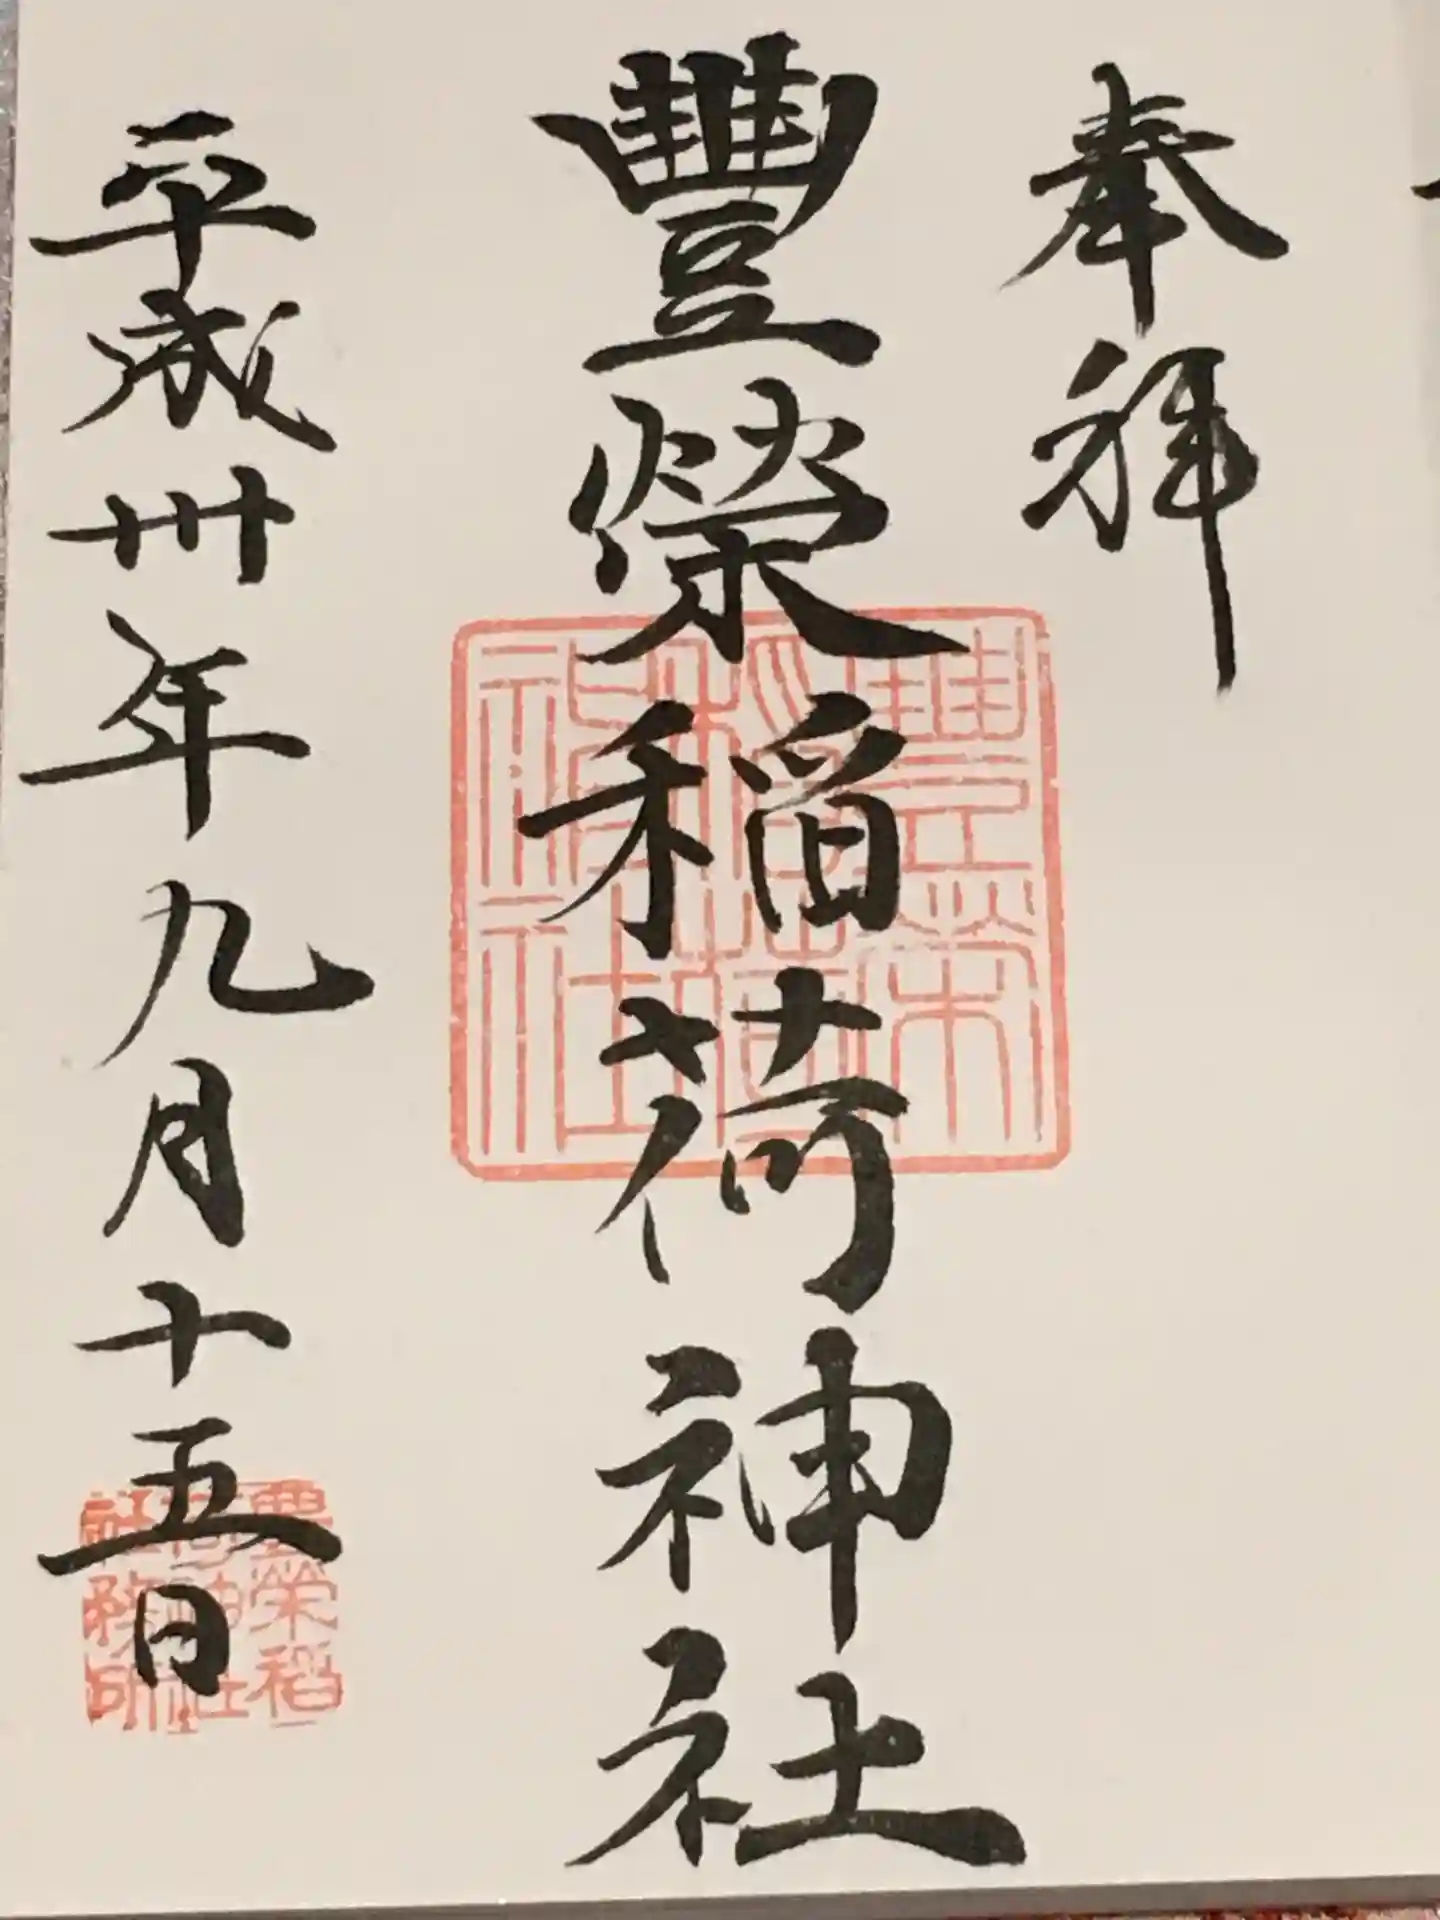 奉拝
豐榮稲荷神社
平成卅年九月十五日
豊荣
稲荷
神社
豊榮稲
荷神社
社務所